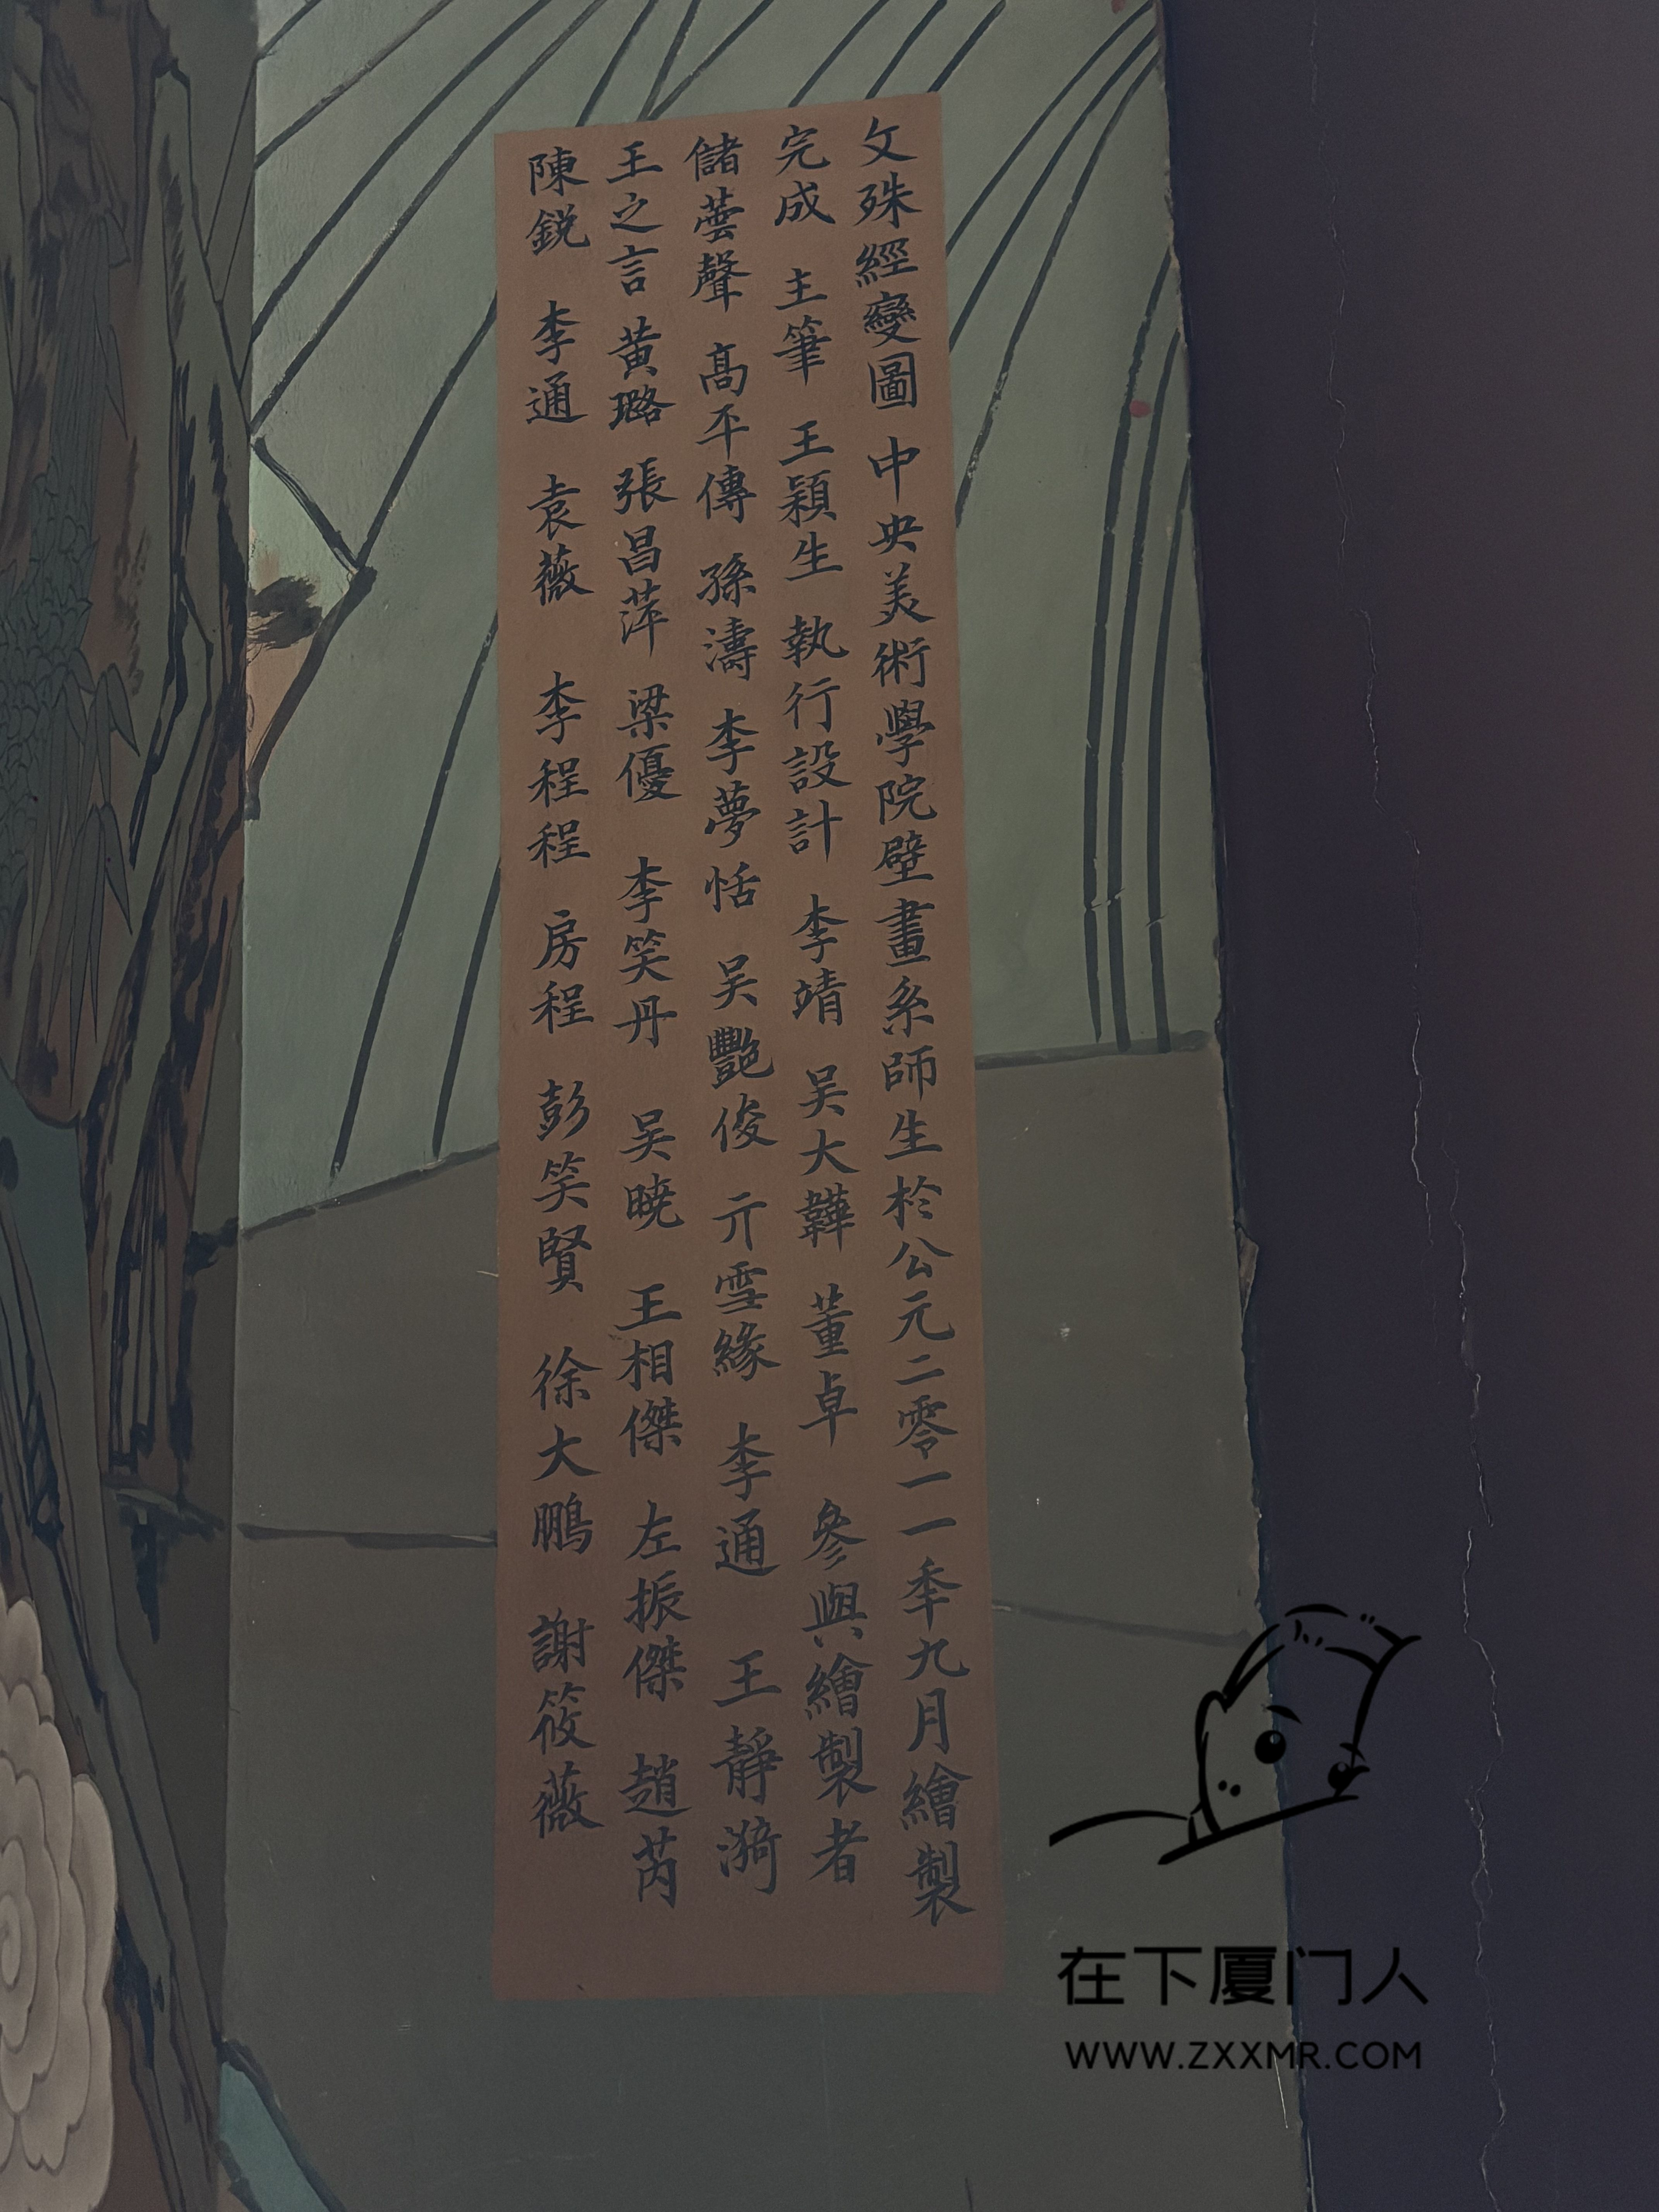 文殊經變圖 中央美術學院壁畫系師生於公元二零一一季九月繪製
完成 主筆 王穎生 執行設計 李靖 吴大韡 董卓 參與繪製者
儲蕓聲 髙平傳 孫濤 李夢恬 吴豔俊 亓雪緣 李通 王靜漪
王之言 黄璐 張昌萍 梁優 李笑丹 吴曉 王相傑 左振傑 趙芮
陳鋭 李通 袁薇 李程程 房程 彭笑賢 徐大鵬 謝筱薇
在下厦门人
WWW.ZXXMR.COM